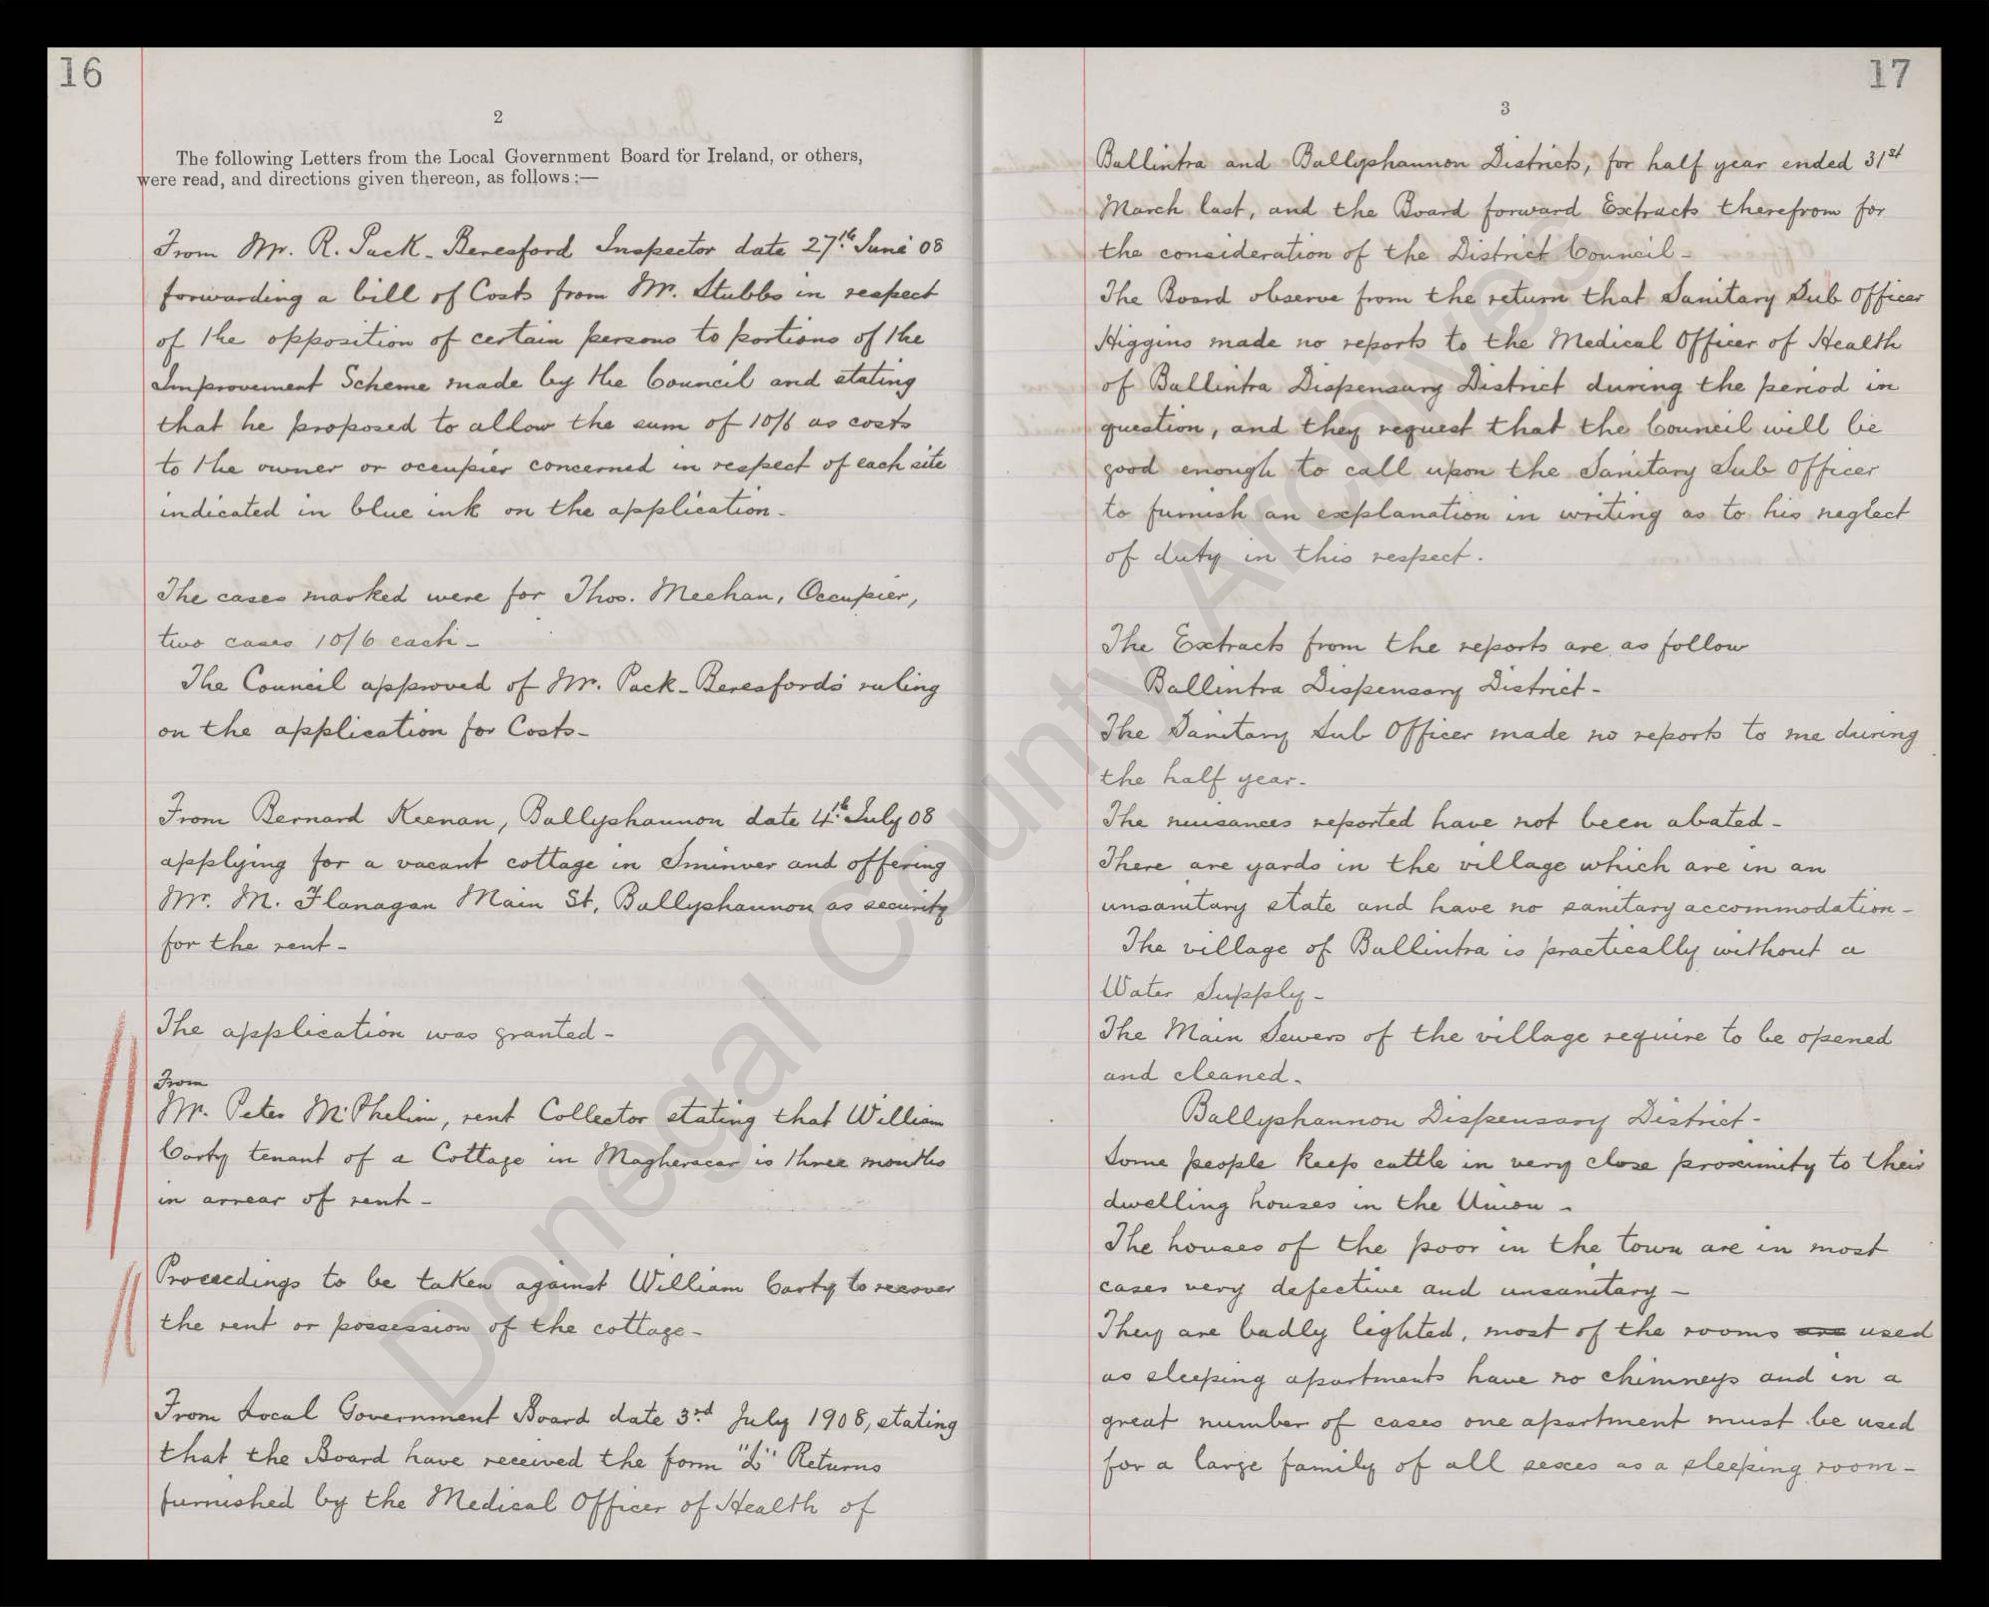 16
2
The following Letters from the Local Government Board for Ireland, or others,
were read, and directions given thereon, as follows :—
From Mr. R. Pack-Beresford Inspector date 27th June 08
forwarding a bill of Costs from Mr. Stubbs in respect
of the opposition of certain persons to portions of the
Improvement Scheme made by the Council and stating
that he proposed to allow the sum of 10/6 as costs
to the owner or occupier concerned in respect of each site
indicated in blue ink on the application-
The cases marked were for Thos. Meehan, Occupier,
two cases 10/6 each-
The Council approved of Mr. Pack-Beresford's ruling
on the application for Costs-
From Bernard Keenan, Ballyshannon date 4th July 08
applying for a vacant cottage in Sminver and offering
Mr. M. Flanagan Main St, Ballyshannon as security
for the rent-
The application was granted-
From
Mr. Peter McPhelim, rent Collector stating that William
Carty tenant of a Cottage in Magheracar is three months
in arrear of rent-
Proceedings to be taken against William Carty to recover
the rent or possession of the cottage-
From Local Government Board date 3rd July 1908, stating
that the Board have received the form "L" Returns
furnished by the Medical Officer of Health of
17
3
Ballintra and Ballyshannon Districts, for half year ended 31st
March last, and the Board forward Extracts therefrom for
the consideration of the District Council-
The Board observe from the return that Sanitary Sub Officer
Higgins made no reports to the Medical Officer of Health
of Ballintra Dispensary District during the period in
question, and they request that the Council will be
good enough to call upon the Sanitary Sub Officer
to furnish an explanation in writing as to his neglect
of duty in this respect.
The Extracts from the reports are as follow
Ballintra Dispensary District-
The Sanitary Sub Officer made no reports to me during
the half year-
The nuisances reported have not been abated-
There are yards in the village which are in an
unsanitary state and have no sanitary accommodation-
The village of Ballintra is practically without a
Water Supply-
The Main Sewers of the village require to be opened
and cleaned.
Ballyshannon Dispensary District-
Some people keep cattle in very close proximity to their
dwelling houses in the Union-
The houses of the poor in the town are in most
cases very defective and unsanitary-
They are badly lighted, most of the rooms are used
as sleeping apartments have no chimneys and in a
great number of cases one apartment must be used
for a large family of all sexes as a sleeping room-
Donegal County Archives